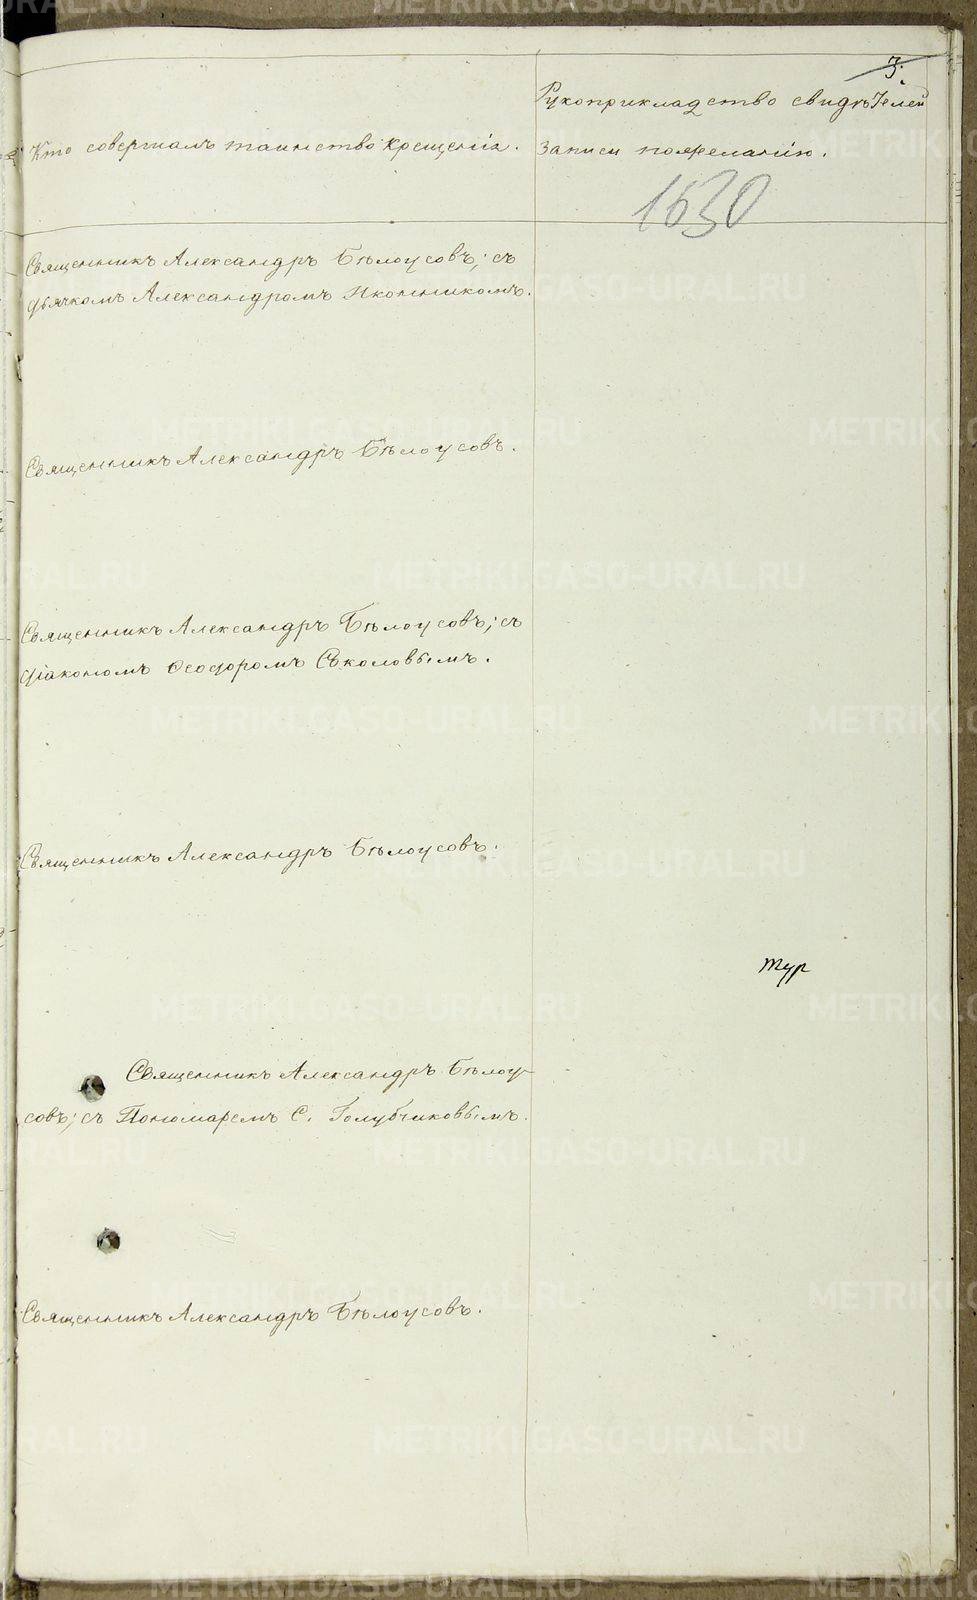 3.
Рукоприкладство свидѣтелей
Кто совершалъ таинство крещенія.
записи по желанію.
1630
Священникъ Александръ Бѣлоусовъ; съ
дьячкомъ Александромъ Иконникомъ.
Священникъ Александръ Бѣлоусовъ.
Священникъ Александръ Бѣлоусовъ; съ
діакономъ Ѳеодоромъ Соколовымъ.
Священникъ Александръ Бѣлоусовъ.
тур
Священникъ Александръ Бѣлоу-
совъ; съ Пономаремъ С. Голубчиковымъ.
Священникъ Александръ Бѣлоусовъ.
METRIKI.GASO-URAL.RU